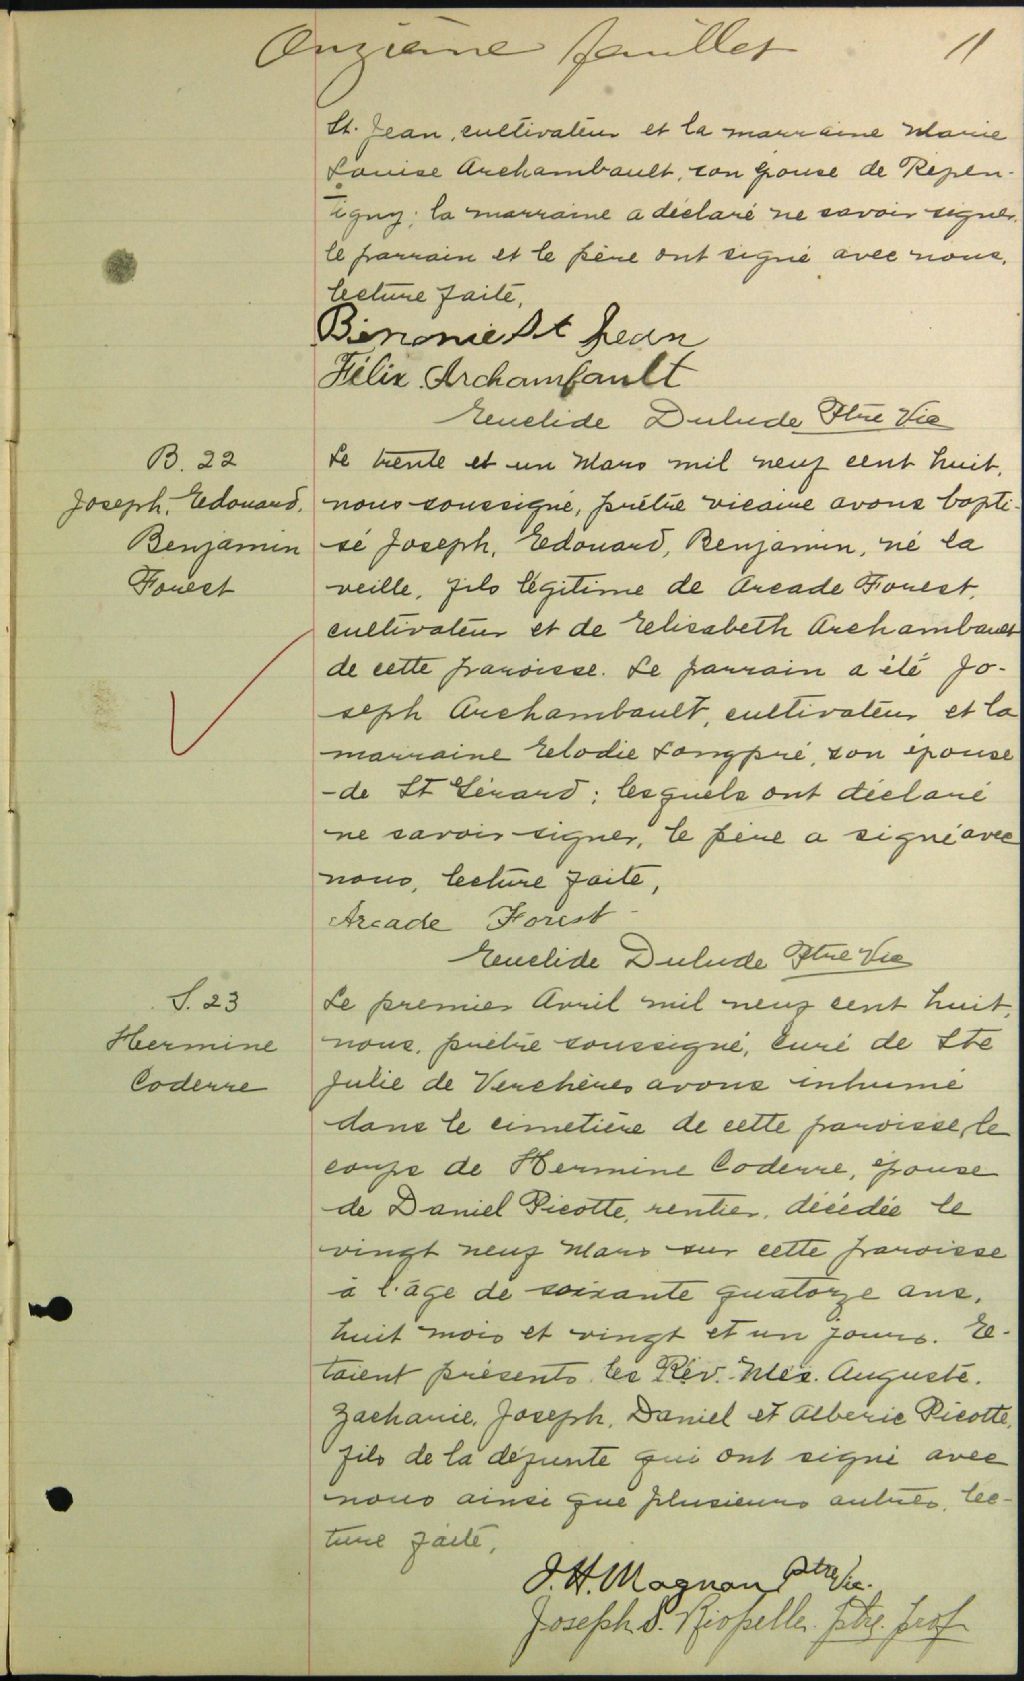 Onzième feuillet 11
St. Jean, cultivateur et la marraine Marie
Louise Archambault, son épouse de Repen-
tigny; la marraine a déclaré ne savoir signer,
le parrain et le père ont signé avec nous,
lecture faite,
Binonie St Jean
Félix Archambault
Euclide Dulude Ptre Vic
B. 22
Joseph, Edouard,
Benjamin
Forest
Le trente et un Mars mil neuf cent huit,
nous soussigné, prêtre vicaire avons bapti-
sé Joseph, Edouard, Benjamin, né la
veille, fils légitime de Arcade Forest,
cultivateur et de Elisabeth Archambault
de cette paroisse. Le parrain a été Jo-
seph Archambault, cultivateur et la
marraine Elodie Longpré, son épouse
de St Gérard; lesquels ont déclaré
ne savoir signer, le père a signé avec
nous, lecture faite,
Arcade Forest
Euclide Dulude Ptre Vic
S. 23
Hermine
Coderre
Le premier Avril mil neuf cent huit,
nous, prêtre soussigné, Curé de Ste
Julie de Verchères avons inhumé
dans le cimetière de cette paroisse, le
corps de Hermine Coderre, épouse
de Daniel Picotte, rentier, décédée le
vingt neuf Mars sur cette paroisse
à l'âge de soixante quatorze ans,
huit mois et vingt et un jours. E-
taient présents les Rév. Auguste,
Zacharie, Joseph, Daniel et Alberic Picotte,
fils de la défunte qui ont signé avec
nous ainsi que plusieurs autres, lec-
ture faite,
J. H. Magnan Ptre Vic.
Joseph S. Riopelle. ptre. prof